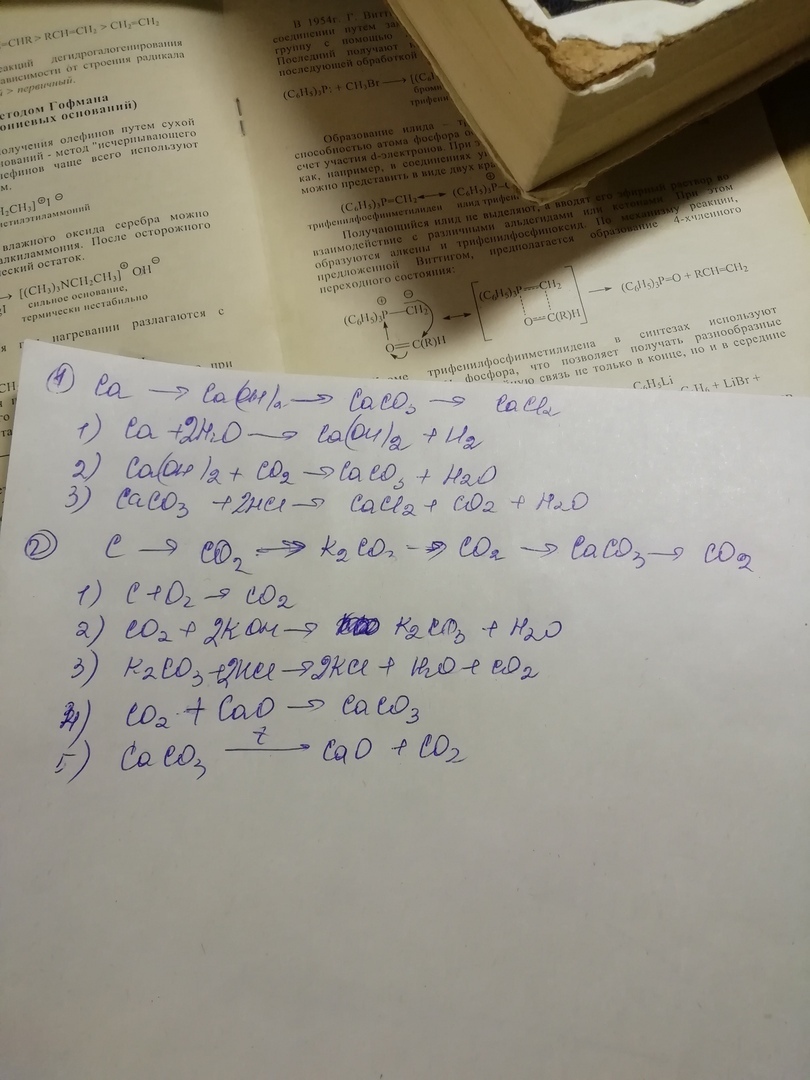 =CHR > RCH=CH₂ > CH₂=CH₂
еакций дегидрогалогенирования
зависимости от строения радикала
> первичный.
етодом Гофмана
ониевых оснований)
олучения олефинов путем сухой
нований - метод "исчерпывающего
лефинов чаще всего используют
м.
H₂CH₃]⊕I⊖
метилэтиламмоний
влажного оксида серебра можно
алкиламмония. После осторожного
ческий остаток.
→ [(CH₃)₃NCH₂CH₃]⊕ OH⊖
gI
сильное основание,
термически нестабильно
нагревании разлагаются с
при
В 1954г. Г Витт
соединении путем за
группу с помощью
Последний получают
последующей обработкой
(C₆H₅)₃P: + CH₃Br → [(C₆
бромид
трифени
Образование илида – т
способностью атома фосфора о
счет участия d-электронов. При
как, например, в соединениях
можно представить в виде двух кр
(C₆H₅)₃P=CH₂ ↔ (C₆H₅)₃P–C
трифенилфосфинметилиден илид трифени
Получающийся илид не выделяют, а вводят его эфирный раствор во
взаимодействие с различными альдегидами или кетонами При этом
образуются алкены и трифенилфосфиноксид. По механизму реакции,
предложенной Виттигом, предполагается образование 4-хчленного
переходного состояния:
⊕ ⊖
(C₆H₅)₃P—CH₂ ↔ [(C₆H₅)₃P---CH₂ → (C₆H₅)₃P=O + RCH=CH₂
O=C(R)H O=C(R)H]
трифенилфосфинметилидена в синтезах используют
фосфора, что позволяет получать разнообразные
ную связь не только в конце, но и в середине
C₆H₅Li C₆H₆ + LiBr +
① Ca → Ca(OH)₂ → CaCO₃ → CaCl₂
1) Ca + 2H₂O → Ca(OH)₂ + H₂
2) Ca(OH)₂ + CO₂ → CaCO₃ + H₂O
3) CaCO₃ + 2HCl → CaCl₂ + CO₂ + H₂O
② C → CO₂ → K₂CO₃ → CO₂ → CaCO₃ → CO₂
1) C + O₂ → CO₂
2) CO₂ + 2KOH → K₂CO₃ + H₂O
3) K₂CO₃ + 2HCl → 2KCl + H₂O + CO₂
4) CO₂ + CaO → CaCO₃
5) CaCO₃ →t CaO + CO₂